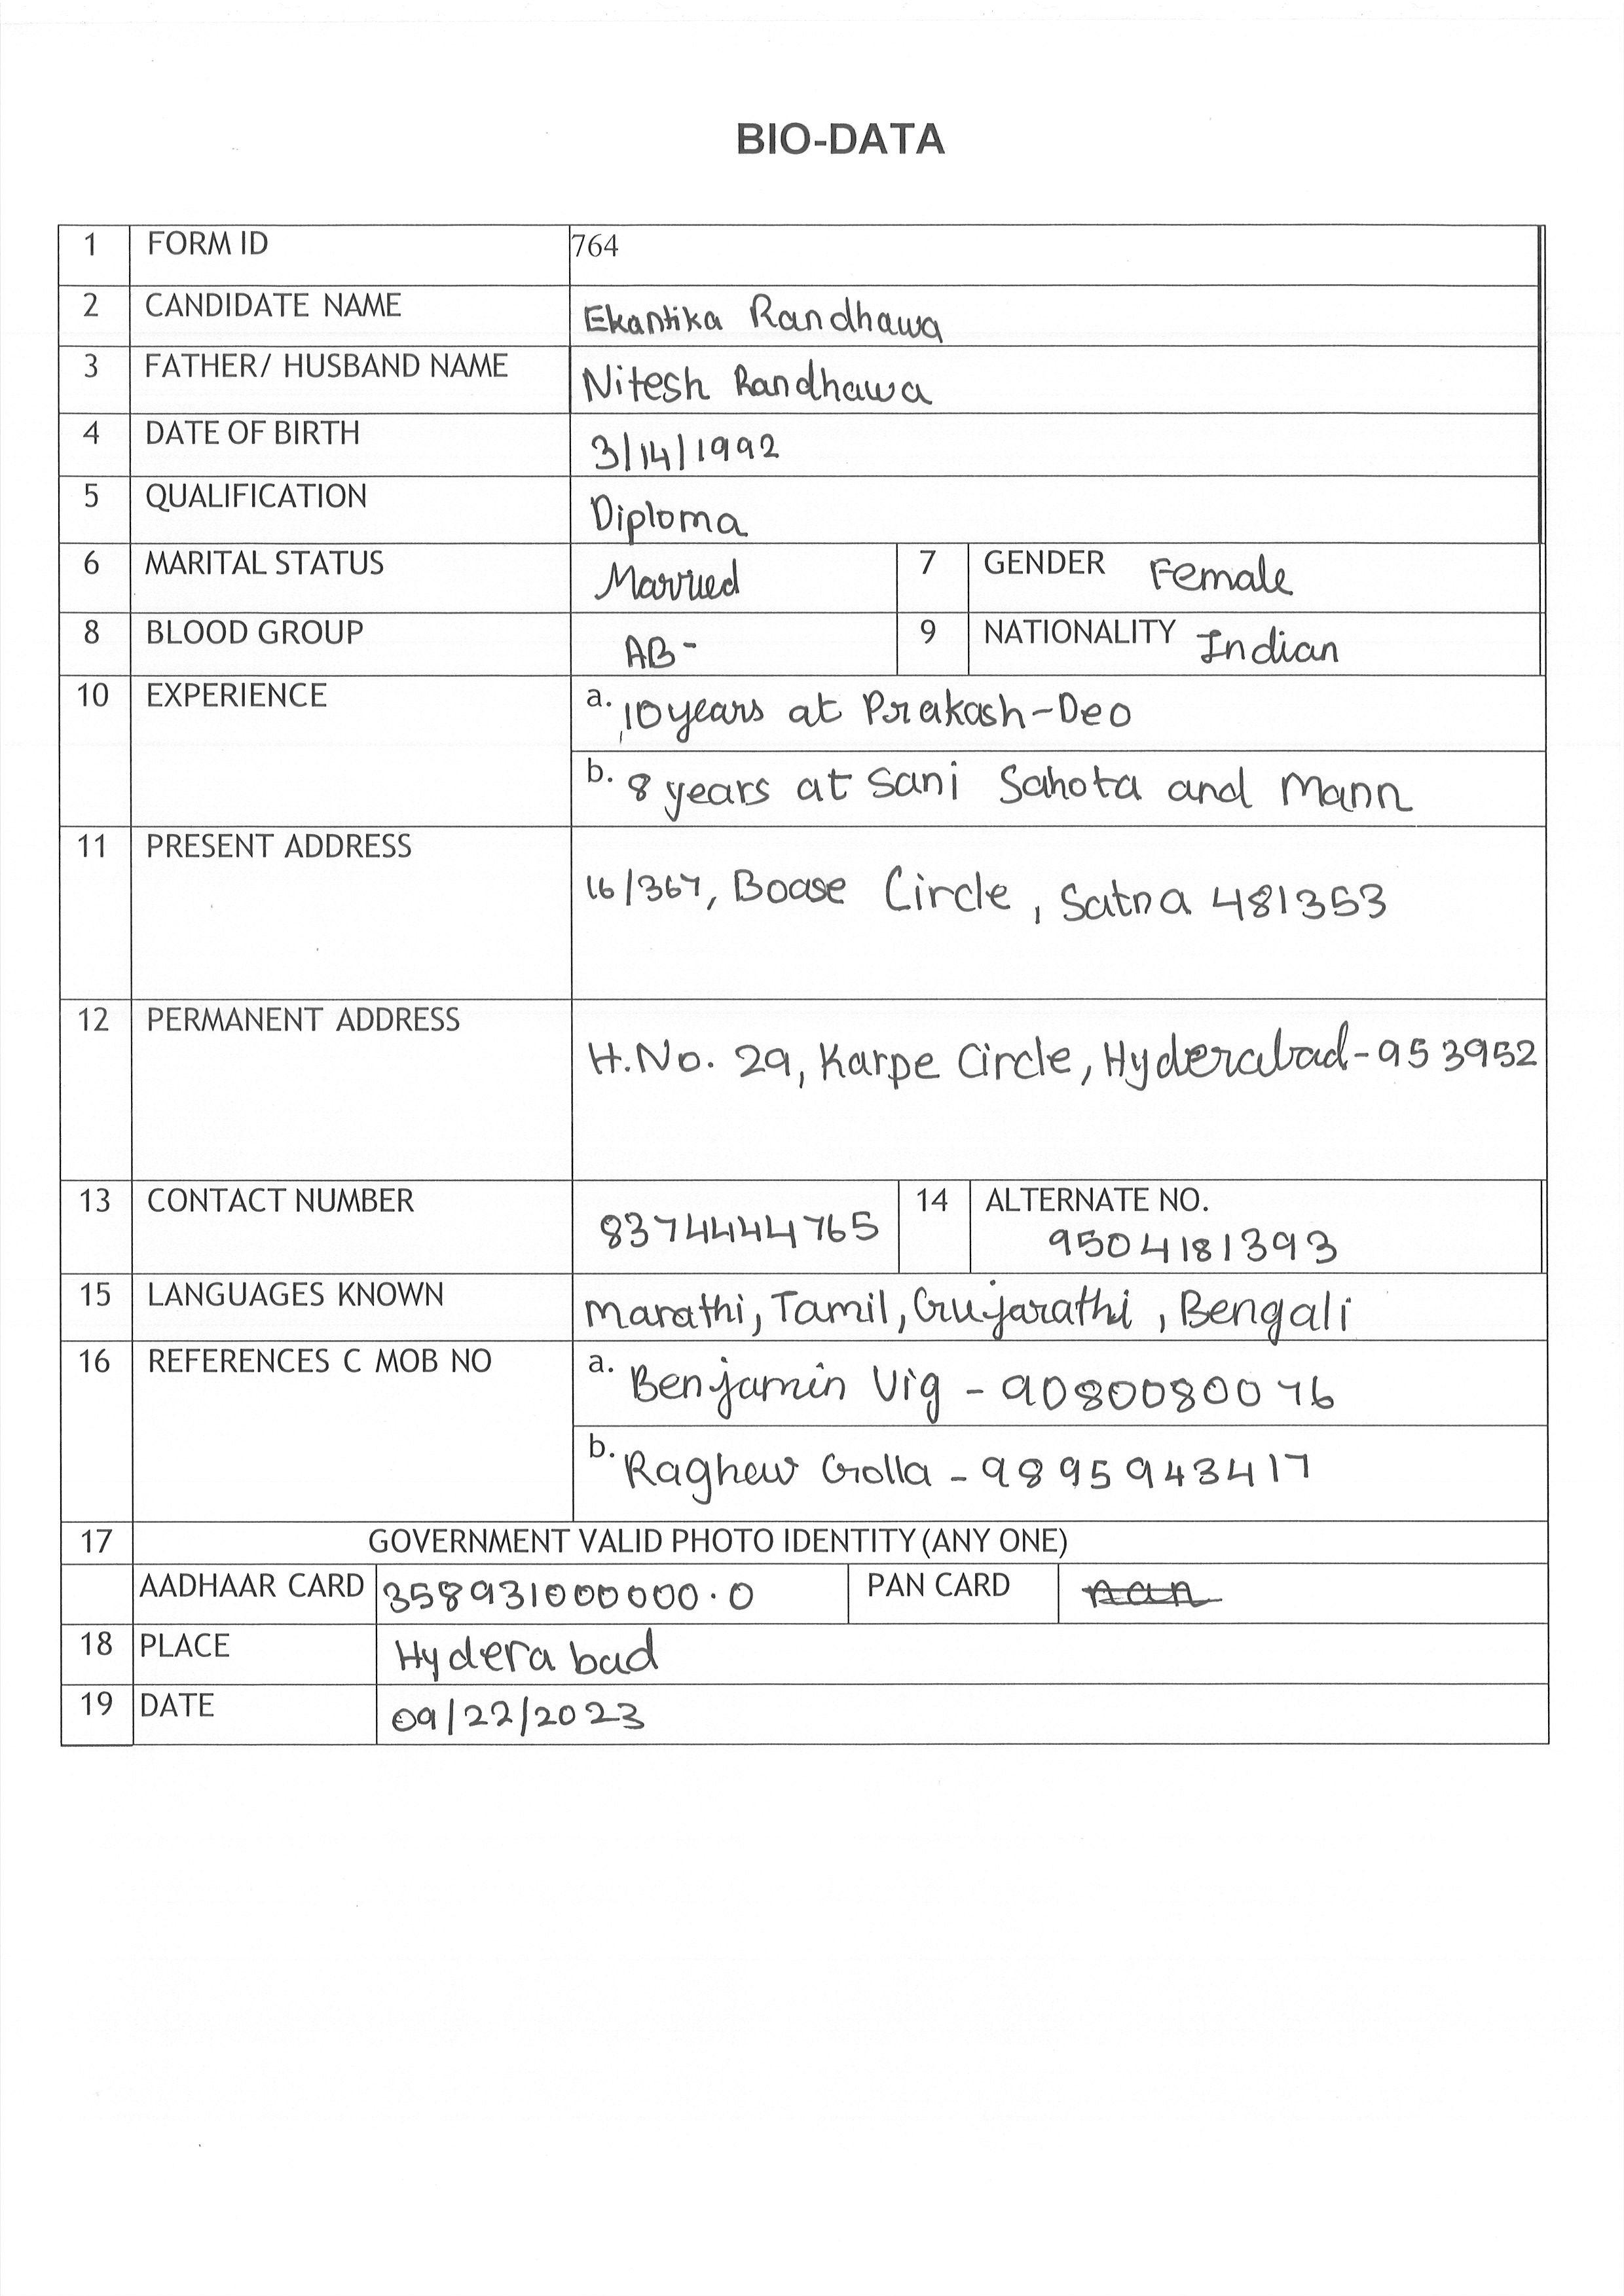 BIO-DATA
1 FORM ID 764
2 CANDIDATE NAME Ekantika Randhawa
3 FATHER/ HUSBAND NAME Nitesh Randhawa
4 DATE OF BIRTH 3/14/1992
5 QUALIFICATION Diploma
6 MARITAL STATUS Married 7 GENDER Female
8 BLOOD GROUP AB- 9 NATIONALITY Indian
10 EXPERIENCE a. 10 years at Prakash-Deo
b. 8 years at Sani Sahota and Mann
11 PRESENT ADDRESS
16/367, Boase Circle, Satna 481353
12 PERMANENT ADDRESS
H.No. 29, Karpe Circle, Hyderabad-953952
13 CONTACT NUMBER 8374444765 14 ALTERNATE NO.
9504181393
15 LANGUAGES KNOWN Marathi, Tamil, Gujarathi, Bengali
16 REFERENCES C MOB NO a. Benjamin Vig - 9080080076
b. Raghew Golla - 9895943417
17 GOVERNMENT VALID PHOTO IDENTITY (ANY ONE)
AADHAAR CARD 358931000000.0 PAN CARD
18 PLACE Hyderabad
19 DATE 09/22/2023